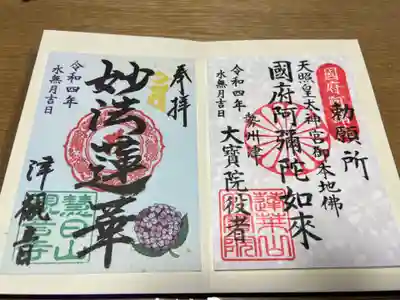 勅願所
國府阿
天照皇太神宮御本地佛
國府阿彌陀如來
勢州津
大寶院役者
令和四年
水無月吉日
奉拝
妙法蓮華
令和四年
水無月吉日
津観音
慧日山
観音寺